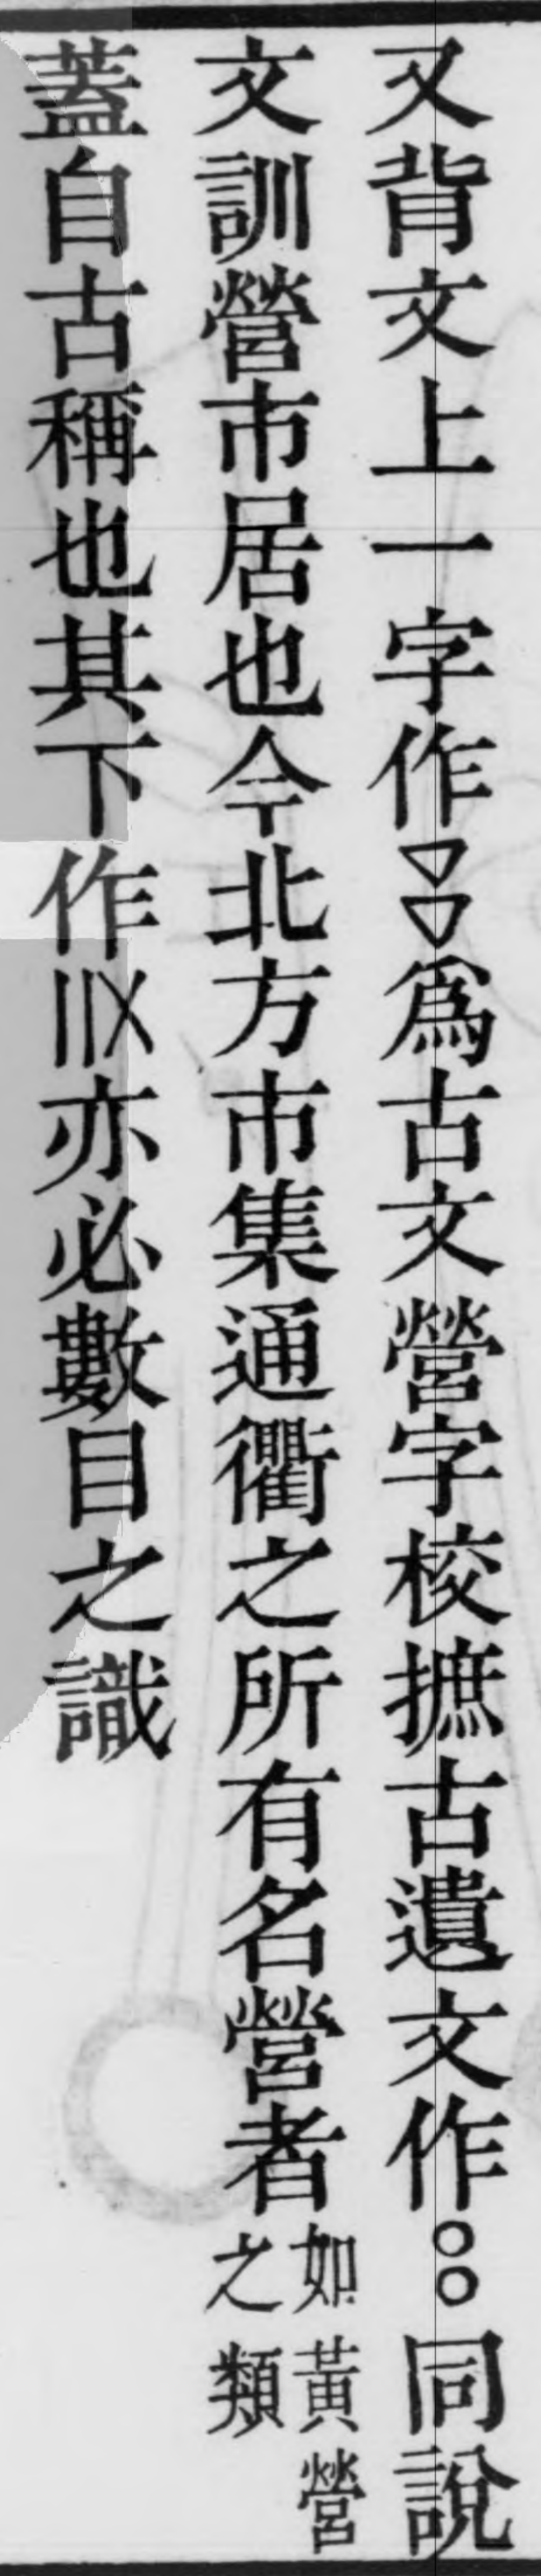 又背文上一字作爲古文營字校摭古遺文作同說
文訓營市居也今北方市集通衢之所有名營者如黃營之類
蓋自古稱也其下作〣〤亦必數目之識